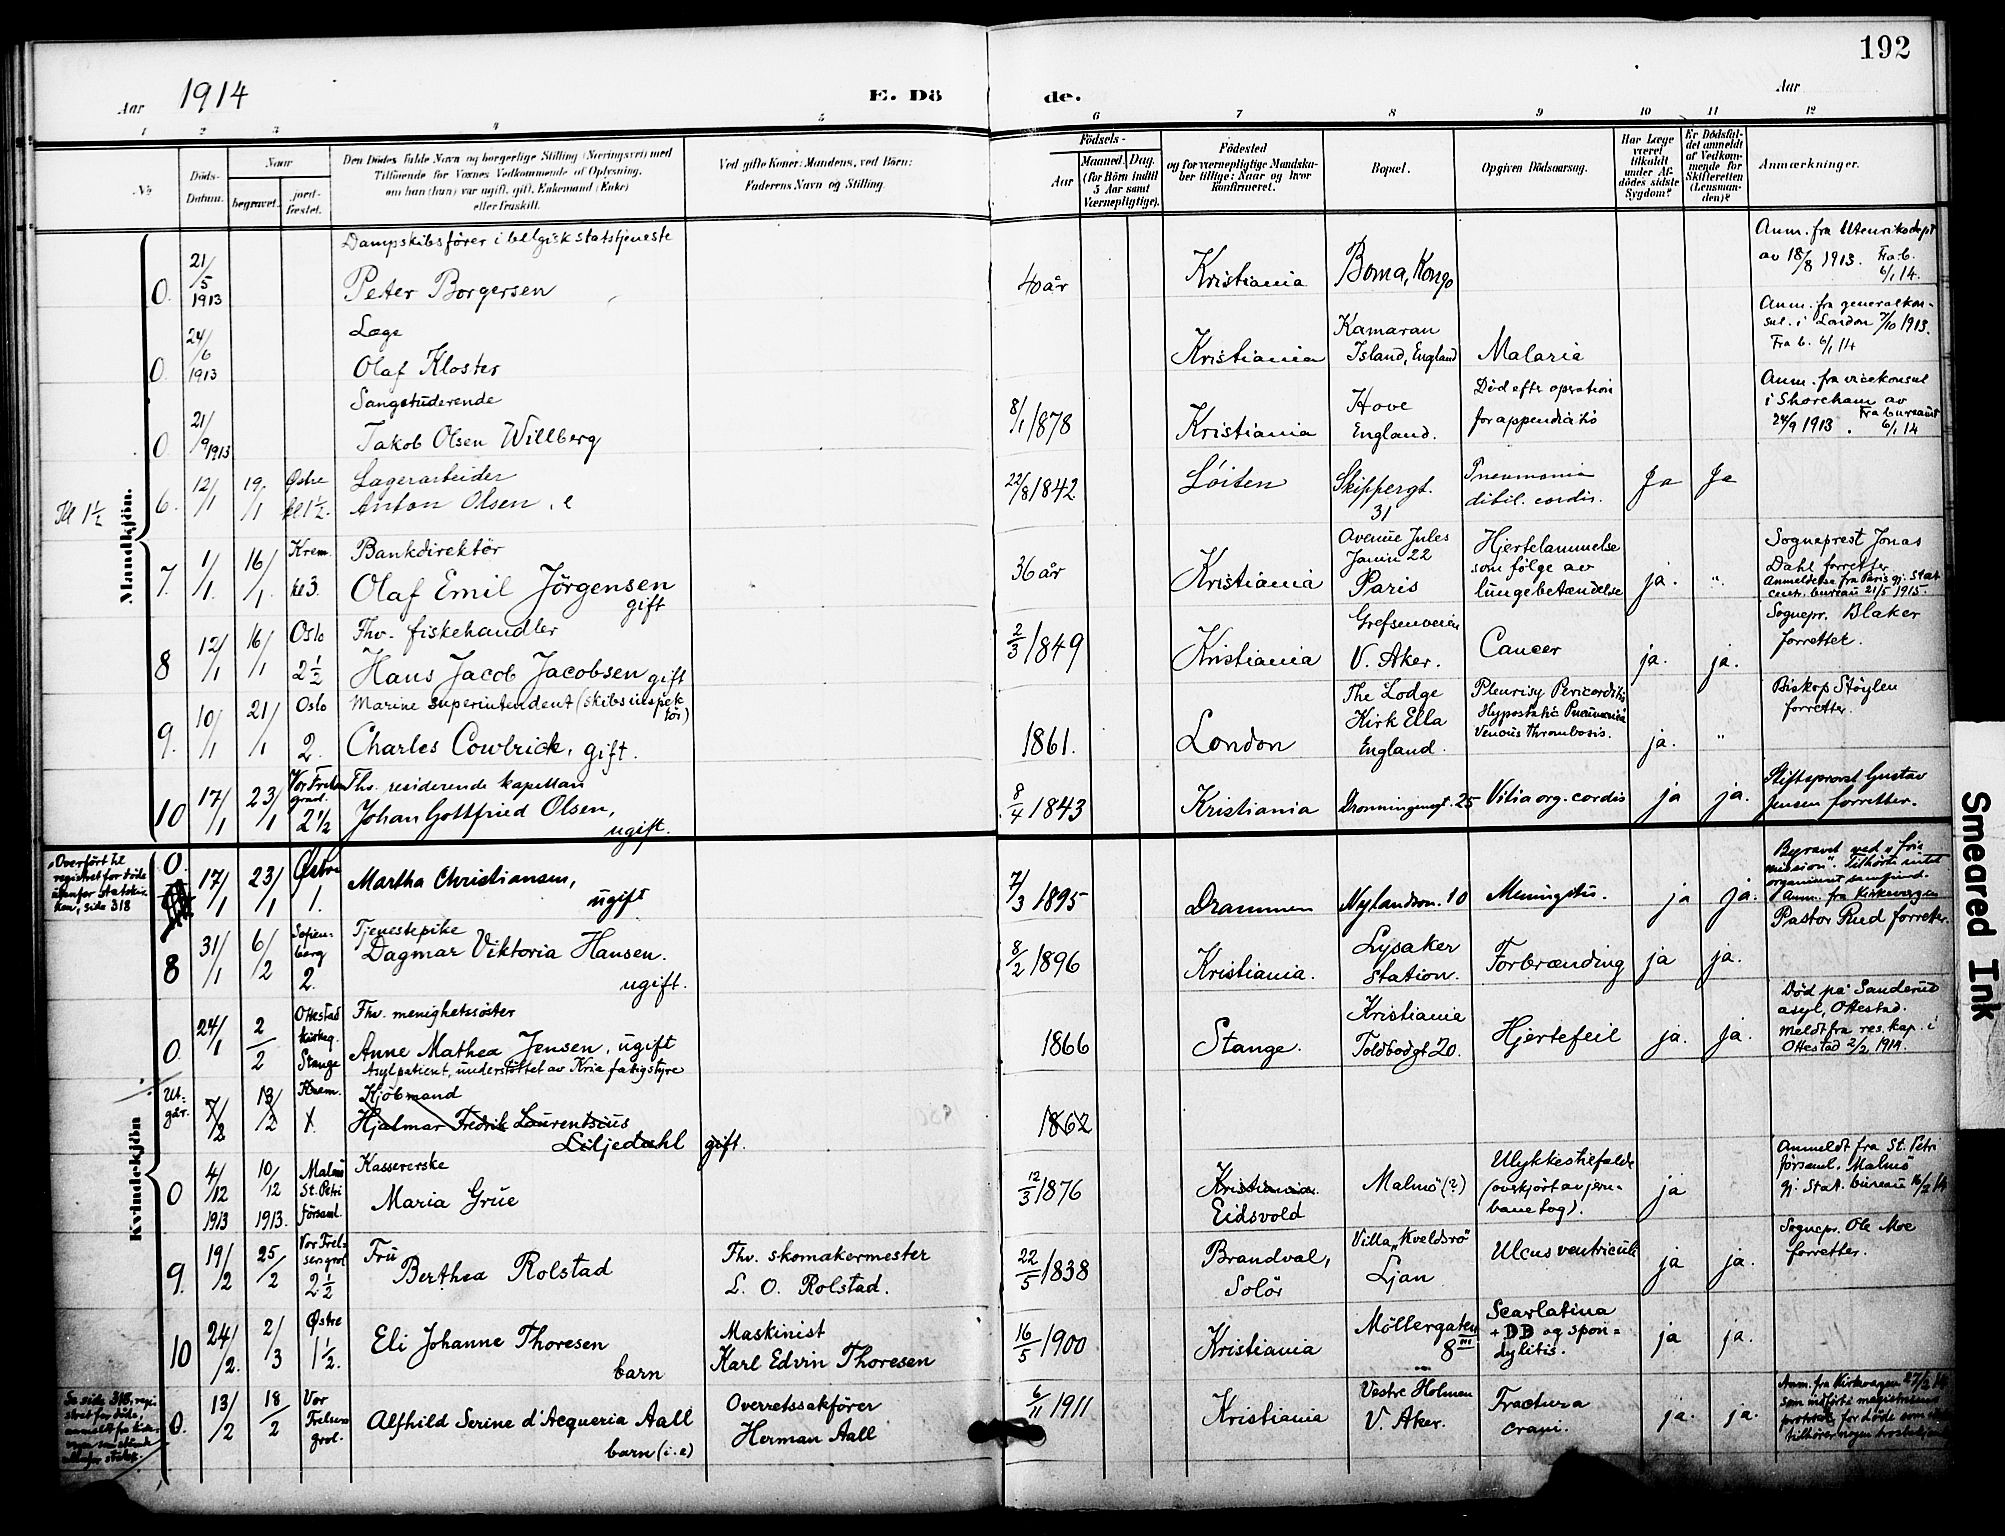 192
Aar 1914
E. Dö
de.
Aar
1 2 3 4 5 6 7 8 9 10 11 12
No
Døds-
Datum.
Naar
begravet.
jord-
fæstet.
Den Dødes fulde Navn og borgerlige Stilling (Næringsvei) med
Tilføiende for Voxnes Vedkommende af Oplysning,
om han (hun) var ugift, gift, Enkemand (Enke)
eller fraskilt.
Ved gifte Koner: Mandens, ved Børn:
Faderens Navn og Stilling.
Fødsels-
Aar
Maaned. Dag.
(for Børn indtil
5 Aar samt
Værnepligtige).
Fødested
og for værnepligtige Mandska-
ber tillige: Naar og hvor
konfirmeret.
Bopæl.
Opgiven Dødsaarsag.
Har Læge
været
tilkaldt
under Af-
dødes sidste
Sygdom?
Er Dødsfal-
det anmeldt
af Vedkom-
mende for
Skifteretten
(Lensman-
den)?
Anmærkninger.
Mandkjön.
0. 21/5 1913
Dampskibsfører i belgisk statstjeneste
Peter Borgersen
40 år
Kristiania
Boma, Kongo
Anm. fra Utenriksdept
av 18/8 1913. Fra b.
6/1 14.
0. 24/6 1913
Læge
Olaf Kloster
Kristiania
Kamaran
Island, England
Malaria
Anm. fra generalkon-
sul. i London 7/10 1913.
Fra b. 6/1 14
0 21/9 1913
Sangstuderende
Jakob Olsen Willberg
8/1 1878
Kristiania
Hove
England.
Död efter operation
for appendicitis
Anm. fra vicekonsul
i Shoreham av
24/9 1913. Fra bureauet
6/1 14
Kl 1½
6. 12/1 19/1 Østre kl 1½.
Lagerarbeider
Anton Olsen, e
22/8 1842
Löiten
Skippergt.
31
Pneumonia
debil. cordis.
Ja Ja
7. 1/1. 16/1. Krem. kl 3.
Bankdirektör
Olaf Emil Jörgensen
gift
36 år
Kristiania
Avenue Jules
Janin 22
Paris
Hjertelammelse
som følge av
lungebetændelse
ja. "
Sogneprest Jonas
Dahl forretter
Anmeldelse fra Paris gj. Stat.
centr. bureau 21/5 1915.
8 12/1 16/1 Oslo 2½
Fhv. fiskehandler
Hans Jacob Jacobsen gift
2/3 1849
Kristiania
Grefsenveien
V. Aker.
Cancer
ja. ja.
Sognepr. Blaker
forretter.
9. 10/1 21/1 Oslo 2.
Marine superintendent (skibsinspek
tör)
Charles Cowlrick, gift.
1861.
London
The Lodge
Kirk Ella
England.
Pleurisy Pericorditis
Hypostatic Pneumonia
Venous thrombosis.
ja. "
Biskop Støylen
forretter.
10 17/1 23/1 Vor Frelsers grav. 2½
Fhv. residerende kapellan
Johan Gottfried Olsen,
ugift.
8/4 1843
Kristiania
Dronningensgt. 25
Vitia org. cordis
ja ja.
Stiftsprovst Gustav
Jensen forretter.
Kvindekjön
Overfört til
registret for döde
utenfor statskir-
ken, side 318
0. 17/1 23/1 Østre 1.
Martha Christiansen,
ugift
7/3 1895
Drammen
Nylandsvn. 10
Meningitis.
ja ja.
Begravet ved "frie
mission". Tilhörte intet
organiseret samfund.
Anm. fra Kirkevergen
8 31/1 6/2 Sofien-
berg 2.
Tjenestepike
Dagmar Viktoria Hansen.
ugift.
8/2 1896
Kristiania.
Lysaker
station.
Forbrænding
ja ja.
Pastor Rud forretter.
0. 24/1 2/2 Ottestad
kirkeg.
Stange
Fhv. menighetssöster
Anne Mathea Jensen, ugift
Asylpatient, understöttet av Kria fatigstyre
1866
Stange.
Kristiania
Toldbodgt 20.
Hjertefeil
ja. ja.
Död på Sanderud
asyl, Ottestad.
Meldt fra res. kap. i
Ottestad 2/2 1914.
Ut-
går. 7/2 13/2 Krem.
Kjöbmand
Hjalmar Fredrik Laurentsius
Liljedahl gift.
1862
0 4/12 1913 10/12 1913. Malmö
St. Petri
församl.
Kassererske
Maria Grue
12/3 1876
Kristiania
Eidsvold
Malmö (?)
Ulykkestilfælde
(overkjört av jern-
bane tog).
ja –
Anmeldt fra St. Petri
församl. Malmö
gj. Stat. bureau 16/2 14
9. 19/2 25/2 Vor Frel-
sers grvl 2½
Fru
Berthea Rolstad
Fhv. skomakermester
L. O. Rolstad.
22/5 1838
Brandval,
Solör
Villa "Kveldsro"
Ljan
Ulcus ventriculi
ja ja.
Sognepr. Ole Moe
forretter.
10 24/2. 2/3 Østre 1½.
Eli Johanne Thoresen
barn
Maskinist
Karl Edvin Thoresen
16/5 1900
Kristiania
Möllergaten
8 III
Scarlatina
+ DD og spon-
dylitis.
ja ja.
Se side 318, regi-
stret for döde,
0. 13/2 18/2 Vor
Frelsers
grvl.
Alfhild Serine d'Acqueria Aall
barn (i.e)
Overretssakförer
Herman Aall
6/11 1911
Kristiania
Vestre Holmen
V. Aker.
Fractura
cranii.
ja. ja.
Anm. fra Kirkevergen 27/2 14
som indförte magistratens
protokol for döde som ikke
tilhörer nogen
Smeared Ink